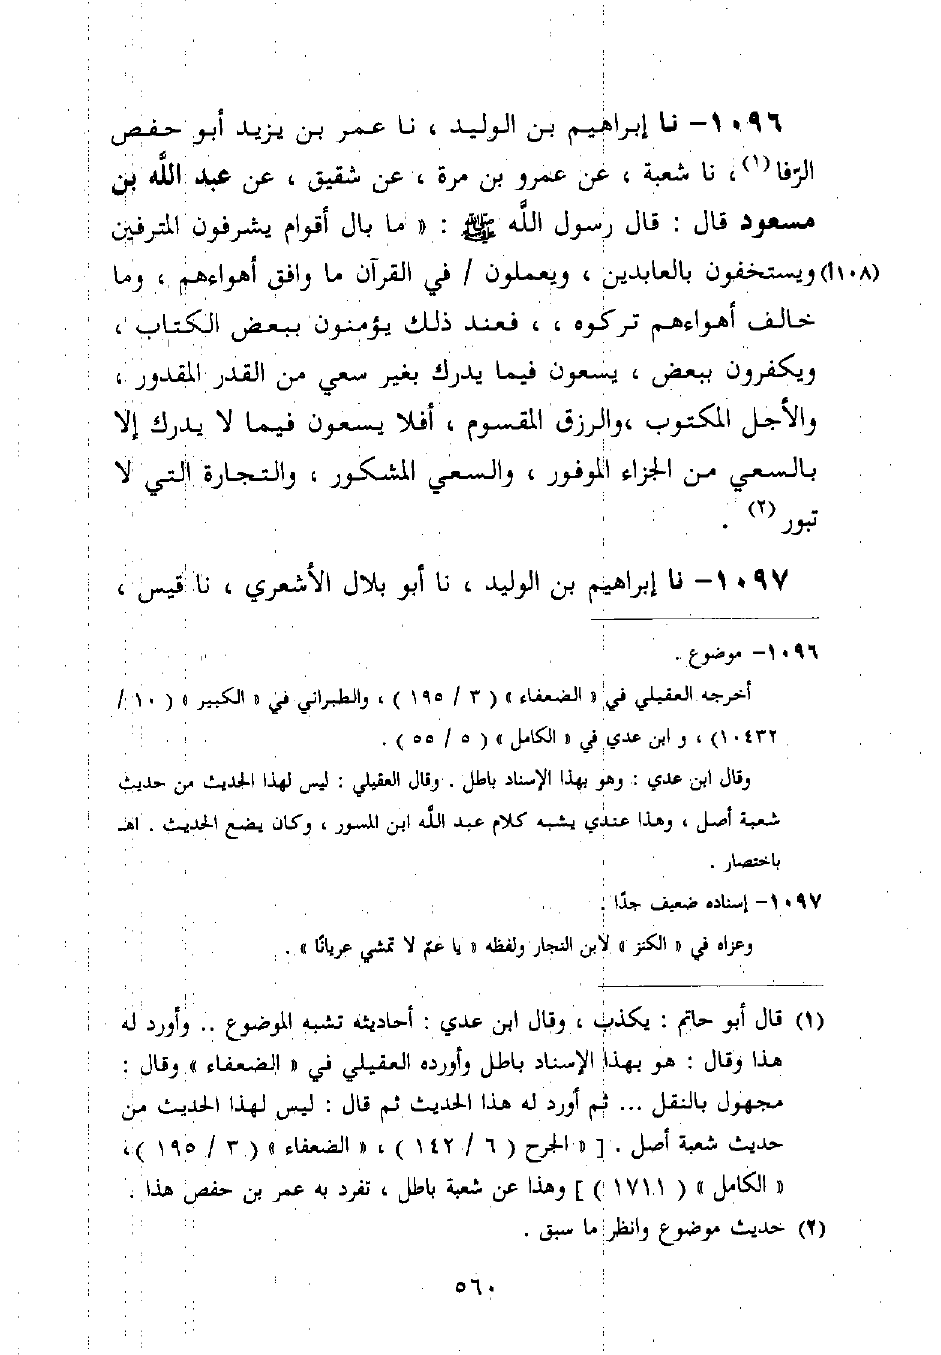 ١٠٩٦- نا إبراهيم بن الوليد ، نا عمر بن يزيد أبو حفص
الرّفا(١)، نا شعبة ، عن عمرو بن مرة ، عن شقيق ، عن عبد الله بن
مسعود قال : قال رسول الله ﷺ : « ما بال أقوام يشرفون المترفين
(١٠٨أ) ويستخفون بالعابدين ، ويعملون / في القرآن ما وافق أهواءهم ، وما
خالف أهواءهم تركوه ، ، فعند ذلك يؤمنون ببعض الكتاب ،
ويكفرون ببعض ، يسعون فيما يدرك بغير سعي من القدر المقدور ،
والأجل المكتوب ،والرزق المقسوم ، أفلا يسعون فيما لا يدرك إلا
بالسعي من الجزاء الموفور ، والسعي المشكور ، والتجارة التي لا
تبور (٢) .
١٠٩٧- نا إبراهيم بن الوليد ، نا أبو بلال الأشعري ، نا قيس ،
١٠٩٦- موضوع .
أخرجه العقيلي في « الضعفاء » ( ٣ / ١٩٥ ) ، والطبراني في « الكبير » ( ١٠ /
١٠٤٣٢) ، و ابن عدي في « الكامل » ( ٥ / ٥٥ ) .
وقال ابن عدي : وهو بهذا الإسناد باطل . وقال العقيلي : ليس لهذا الحديث من حديث
شعبة أصل ، وهذا عندي يشبه كلام عبد الله ابن المسور ، وكان يضع الحديث . اهـ
باختصار .
١٠٩٧- إسناده ضعيف جدًا .
وعزاه في « الكنز » لابن النجار ولفظه « يا عمّ لا تمشي عريانًا » .
(١) قال أبو حاتم : يكذب ، وقال ابن عدي : أحاديثه تشبه الموضوع .. وأورد له
هذا وقال : هو بهذا الإسناد باطل وأورده العقيلي في « الضعفاء » وقال :
مجهول بالنقل ... ثم أورد له هذا الحديث ثم قال : ليس لهذا الحديث من
حديث شعبة أصل . [ « الجرح ( ٦ / ١٤٢ ) ، « الضعفاء » ( ٣ / ١٩٥ )،
« الكامل » ( ١٧١١ ) ] وهذا عن شعبة باطل ، تفرد به عمر بن حفص هذا .
(٢) حديث موضوع وانظر ما سبق .
٥٦٠